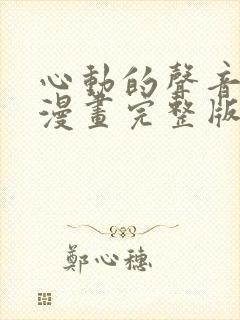 心動的聲音
漫畫完整版
鄭心穗